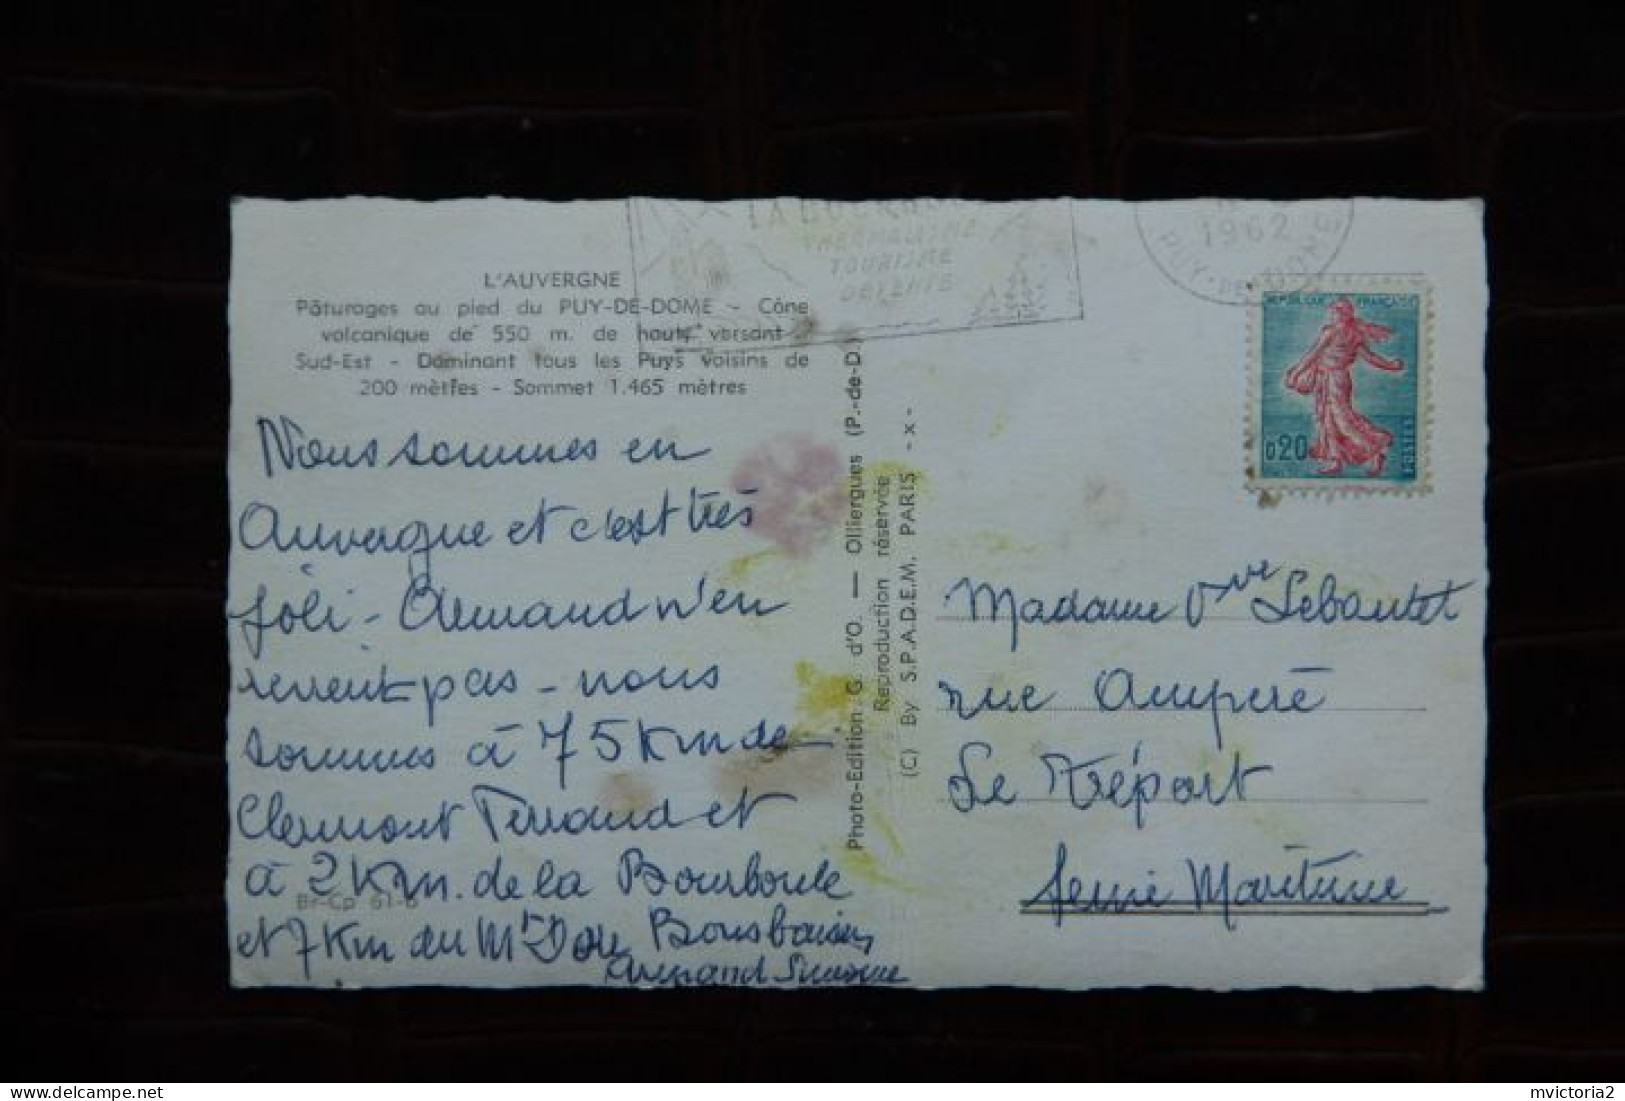 LA BOURBOULE
THERMALISME
TOURISME
DÉTENTE
1962
PUY-DE-DOME
REPUBLIQUE FRANÇAISE
0,20
POSTES
L'AUVERGNE
Pâturages au pied du PUY-DE-DOME - Cône
volcanique de 550 m. de haut, versant
Sud-Est - Dominant tous les Puys voisins de
200 mètres - Sommet 1.465 mètres
Nous sommes en
Auvergne et c'est très
joli - Armand n'en
revient pas - nous
sommes à 75 Km de
Clermont Ferrand et
à 2 Km. de la Bourboule
et 7 Km du Mt Dore Bons baisers
Armand Simone
Br-Cp 61-6
Photo-Edition G. d'O. — Olliergues (P.-de-D.)
Reproduction réservée
(C) By S.P.A.D.E.M. PARIS -x-
Madame Vve Lebaudet
rue Ampère
Le Tréport
Seine Maritime
delcampe.net
mvictoria2